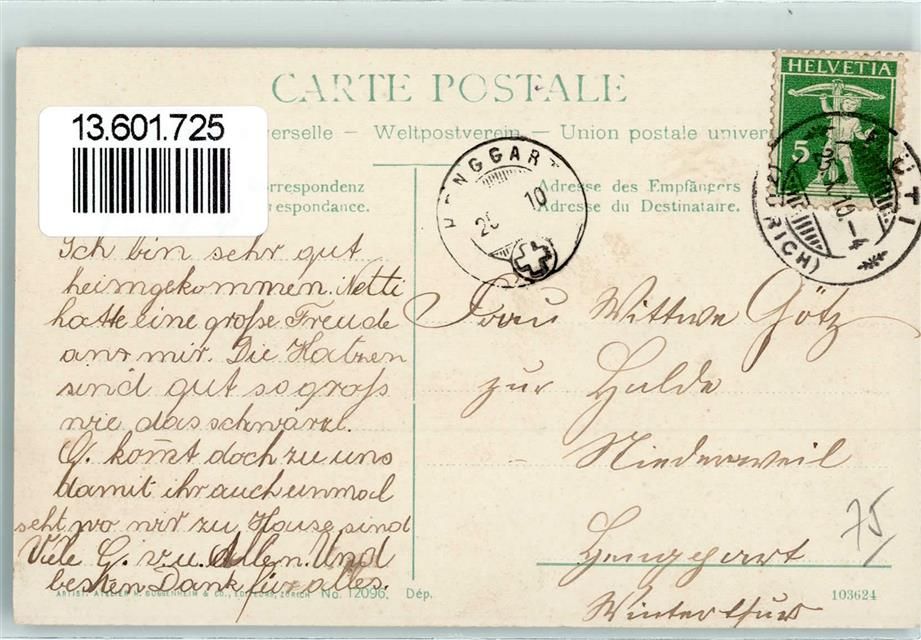 CARTE POSTALE
13.601.725
erselle – Weltpostverein – Union postale univer
rrespondenz
respondance.
Adresse des Empfängers
Adresse du Destinataire.
HELVETIA
5
HENGGART
25 10
RÜTI
(ZÜRICH)
Ich bin sehr gut
heimgekommen. Netti
hatte eine große Freude
an mir. Die Katzen
sind gut so gross
wie das schwarze.
O. kom̄t doch zu uns
damit ihr auch unmal
seht wo wir zu Hause sind
Viele G. v. u. Allen. Und
besten Dank für alles.
Frau Wittwe Götz
zur Halde
Niederweil
Henggart
Winterthur
75
ARTIST. ATELIER H. GUGGENHEIM & CO., EDITEURS, ZÜRICH No. 12096. Dép.
103624